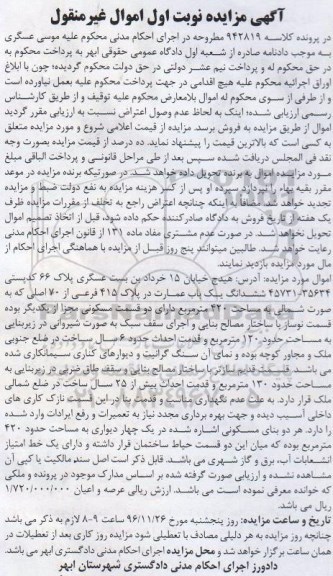 آگهی مزایده نوبت اول اموال غیر منقول
در پرونده کلاسه ۹۴۲۸۱۹ مطروحه در اجرای احکام مدنی محکوم علیه موسی عسگری
به موجب دادنامه صادره از شعبه اول دادگاه عمومی حقوقی ابهر به پرداخت محکوم به
در حق محکوم له و پرداخت نیم عشر دولتی در حق دولت محکوم گردیده؛ چون با ابلاغ
اوراق اجرائیه محکوم علیه هیچ اقدامی در جهت پرداخت محکوم علیه بعمل نیاورده است
و از طرفی از سوی محکوم له اموال بلامعارض محکوم علیه توقیف و از طریق کارشناس
رسمی ارزیابی شده؛ اینک به لحاظ عدم وصول اعتراض نسبت به ارزیابی مقرر گردید
اموال از طریق مزایده به فروش برسد. مزایده از قیمت اعلامی شروع و مورد مزایده متعلق
به کسی است که بالاترین قیمت را پیشنهاد نماید. ده درصد از قیمت مزایده بصورت وجه
نقد فی المجلس دریافت شده سپس بعد از طی مراحل قانونی و پرداخت الباقی مبلغ
مورد مزایده، مال به برنده تحویل داده خواهد شد. در صورتیکه برنده مزایده در موعد
مقرر بقیه بهاء را نپردازد سپرده او پس از کسر هزینه مزایده به نفع دولت ضبط و مزایده
تجدید خواهد شد. مضافاً به اینکه چنانچه اعتراض راجع به تخلف از مقررات مزایده ظرف
یک هفته از تاریخ فروش به دادگاه صادرکننده حکم داده شود، قبل از اتخاذ تصمیم اموال
تحویل نخواهد شد. در صورت عدم مشتری مفاد ماده ۱۳۱ از قانون اجرای احکام مدنی
رعایت خواهد شد. طالبین میتوانند پنج روز قبل از مزایده با هماهنگی اجرای احکام از
مال مورد مزایده بازدید نمایند.
اموال مورد مزایده: آدرس: هیدج خیابان ۱۵ خرداد بن بست عسگری پلاک ۶۶ کدپستی
۳۵۶۴۳-۴۵۷۳۱ ششدانگ یک باب عمارت در پلاک ۴۱۵ فرعی از ۷۰ اصلی که به
صورت شمالی به مساحت ۴۲۰ مترمربع دارای دو قسمت مسکونی مجزا از یکدیگر بوده
قسمت نوساز با ساختار مصالح بنایی و اجرای سقف سبک به صورت شیروانی در زیربنایی
به مساحت حدود ۱۲۰ مترمربع و قدمت احداث حدود ۶ سال ساخت در ضلع جنوبی
ملک و مجاور کوچه بوده و نمای آن سنگ گرانیت و دیوارهای کناری سیمانکاری شده
می باشد. قسمت قدیمی ساز نیز با ساختار مصالح بنایی و سقف طاق ضربی در زیربنایی به
مساحت حدود ۱۳۰ مترمربع و قدمت احداث بیش از ۲۵ سال ساخت در ضلع شمالی
ملک قرار دارد. به علت عدم نگهداری مناسب و قدمت بنا در این قسمت، نازک کاری های
داخلی آسیب دیده و جهت بهره برداری مجدد نیاز به تعمیرات و رفع ایرادات وارد شده
را دارد. هر دو بنای مسکونی اشاره شده در یک چهار دیواری به مساحت حدود ۴۲۰
مترمربع بوده که میان این دو قسمت حیاط ساختمان قرار داشته و دارای یک خط امتیاز
انشعابات آب، برق و گاز شهری می باشد. قابل ذکر است اصل سند مالکیت یا کپی آن
مشاهده نشده و ارزیابی صورت گرفته شده بر اساس مدارک موجود در پرونده و ملکی
که خوانده معرفی نموده است می باشد. ارزش ریالی عرصه و اعیان ۱/۷۲۰/۰۰۰/۰۰۰
ریال می باشد.
تاریخ و ساعت مزایده: روز پنجشنبه مورخ ۹۶/۱۱/۲۶ ساعت ۹-۸ لازم به ذکر می باشد
چنانچه روز مزایده به هر دلیلی مصادف با تعطیلی شود مزایده روز کاری بعد از تعطیلات در
همان ساعت برگزار خواهد شد و محل مزایده اجرای احکام مدنی دادگستری ابهر می باشد.
دادورز اجرای احکام مدنی دادگستری شهرستان ابهر